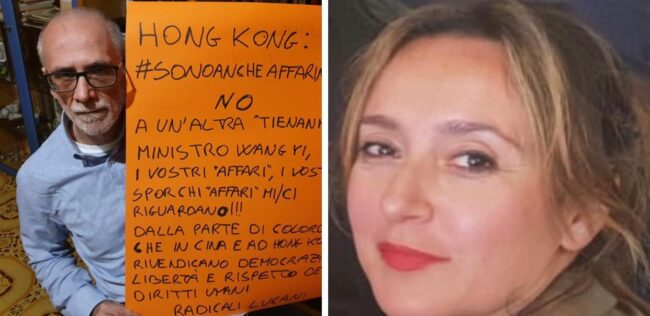 HONG KONG:
#SONOANCHEAFFARIM
NO
A UN'ALTRA "TIENANM
MINISTRO WANG YI,
I VOSTRI "AFFARI", I VOST
SPORCHI "AFFARI" MI/CI
RIGUARDANO!!!
DALLA PARTE DI COLORO
CHE IN CINA E AD HONG KO
RIVENDICANO DEMOCRAZI
LIBERTÀ E RISPETTO DE
DIRITTI UMANI
RADICALI LUCANI